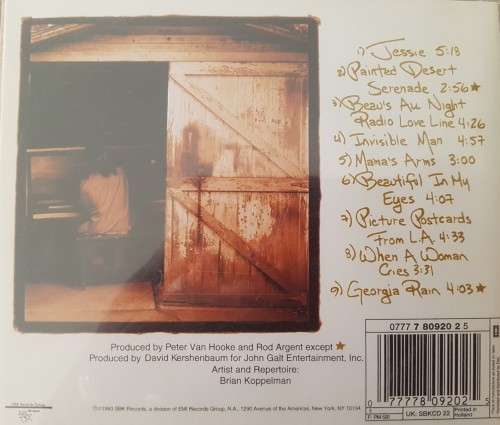 1) Jessie 5:18
2) Painted Desert
Serenade 2:56 ★
3) Beau's All Night
Radio Love Line 4:26
4) Invisible Man 4:57
5) Mama's Arms 3:00
6) Beautiful In My
Eyes 4:07
7) Picture Postcards
From L.A. 4:33
8) When A Woman
Cries 3:31
9) Georgia Rain 4:03 ★
Produced by Peter Van Hooke and Rod Argent except ★
Produced by David Kershenbaum for John Galt Entertainment, Inc.
Artist and Repertoire:
Brian Koppelman
0777 7 80920 2 5
0 77778 09202 5
UK: SBKCD 22
Printed in
Holland
SBK Records Group, a division of EMI Records Group, N.A., 1290 Avenue of the Americas, New York, NY 10104